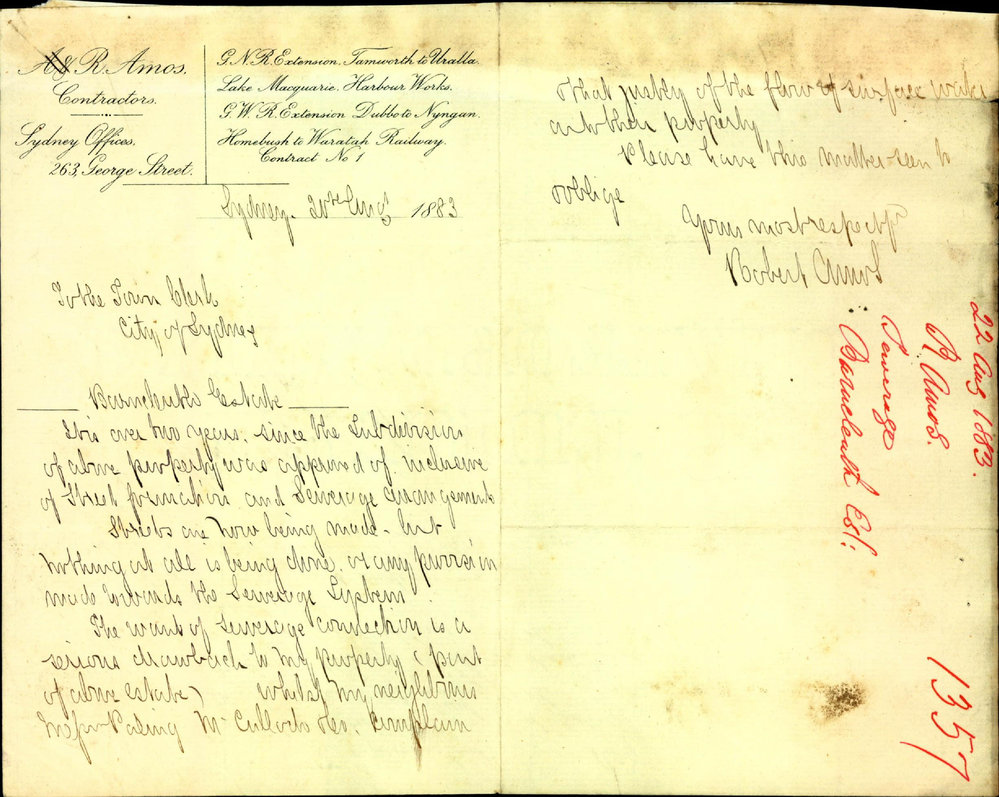 A & R. Amos.
Contractors.
Sydney Offices.
263, George Street.
G.N.R. Extension. Tamworth to Uralla.
Lake Macquarie. Harbour Works.
G.W.R. Extension Dubbo to Nyngan.
Homebush to Waratah Railway.
Contract No 1
Sydney. 20th Augt 1883
To the Town Clerk
City of Sydney
Barncleuth Estate
It is over two years. since the Subdivision
of above property was approved of. inclusive
of Street formation and Sewerage arrangements
Streets are now being made - but
nothing at all is being done. or any provision
made towards the Sewerage System.
The want of sewerage connection is a
serious drawback to my property (part
of above estate) whilst my neighbours
Messrs Paling McCulloch &co. complain
& that justly of the flow of surface water
onto their property
Please have this matter seen to
& oblige
Yours most respectfy
Robert Amos
22 Aug 1883.
R Amos.
Sewerage
Barncleuth Est:
1357